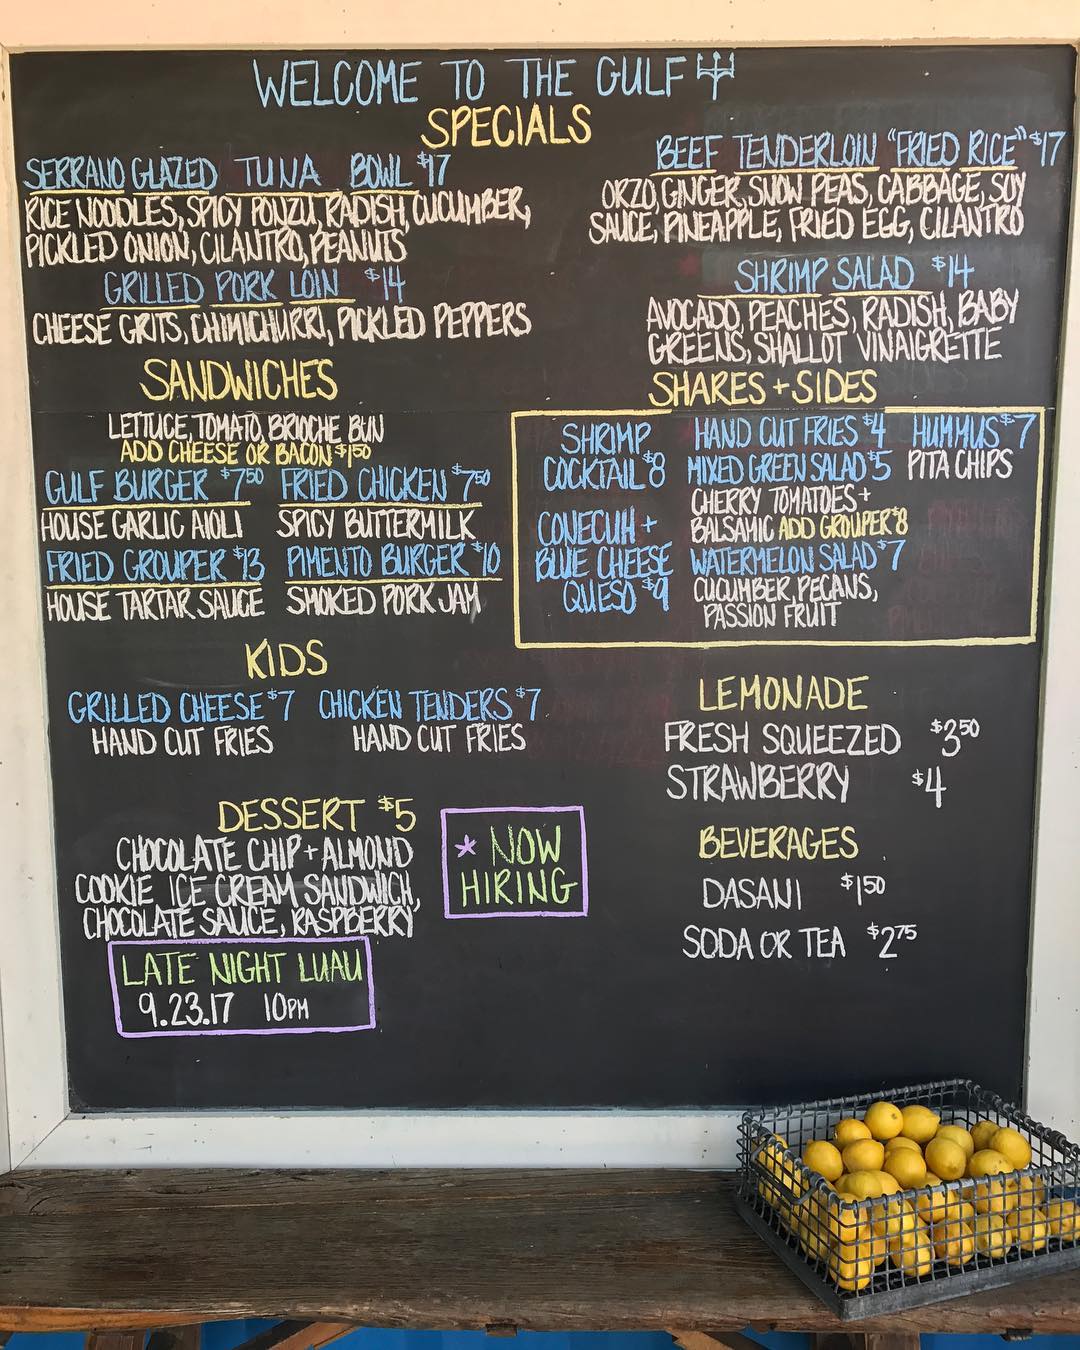 WELCOME TO THE GULF
SPECIALS
SERRANO GLAZED TUNA BOWL $17
RICE NOODLES, SPICY PONZU, RADISH, CUCUMBER,
PICKLED ONION, CILANTRO, PEANUTS
GRILLED PORK LOIN $14
CHEESE GRITS, CHIMICHURRI, PICKLED PEPPERS
BEEF TENDERLOIN "FRIED RICE" $17
ORZO, GINGER, SNOW PEAS, CABBAGE, SOY
SAUCE, PINEAPPLE, FRIED EGG, CILANTRO
SHRIMP SALAD $14
AVOCADO, PEACHES, RADISH, BABY
GREENS, SHALLOT VINAIGRETTE
SANDWICHES
LETTUCE, TOMATO, BRIOCHE BUN
ADD CHEESE OR BACON $150
GULF BURGER $750
HOUSE GARLIC AIOLI
FRIED CHICKEN $750
SPICY BUTTERMILK
FRIED GROUPER $13
HOUSE TARTAR SAUCE
PIMENTO BURGER $10
SMOKED PORK JAM
SHARES + SIDES
SHRIMP
COCKTAIL $8
CONECUH +
BLUE CHEESE
QUESO $9
HAND CUT FRIES $4
MIXED GREEN SALAD $5
CHERRY TOMATOES +
BALSAMIC ADD GROUPER $8
WATERMELON SALAD $7
CUCUMBER, PECANS,
PASSION FRUIT
HUMMUS $7
PITA CHIPS
KIDS
GRILLED CHEESE $7
HAND CUT FRIES
CHICKEN TENDERS $7
HAND CUT FRIES
LEMONADE
FRESH SQUEEZED $350
STRAWBERRY $4
DESSERT $5
CHOCOLATE CHIP + ALMOND
COOKIE ICE CREAM SANDWICH,
CHOCOLATE SAUCE, RASPBERRY
* NOW
HIRING
BEVERAGES
DASANI $150
SODA OR TEA $275
LATE NIGHT LUAU
9.23.17 10PM